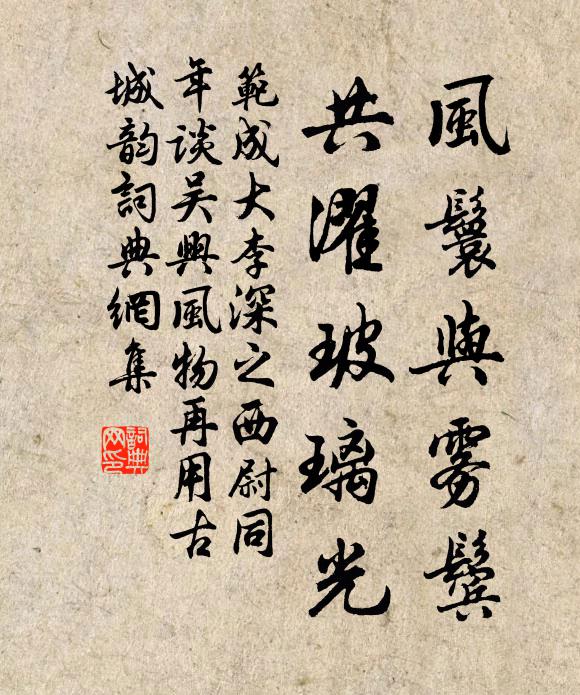 風鬟與雾鬓
共濯玻璃光
範成大李深之西尉同
年谈吴興風物再用古
城韵詞典網集
詞典
网印